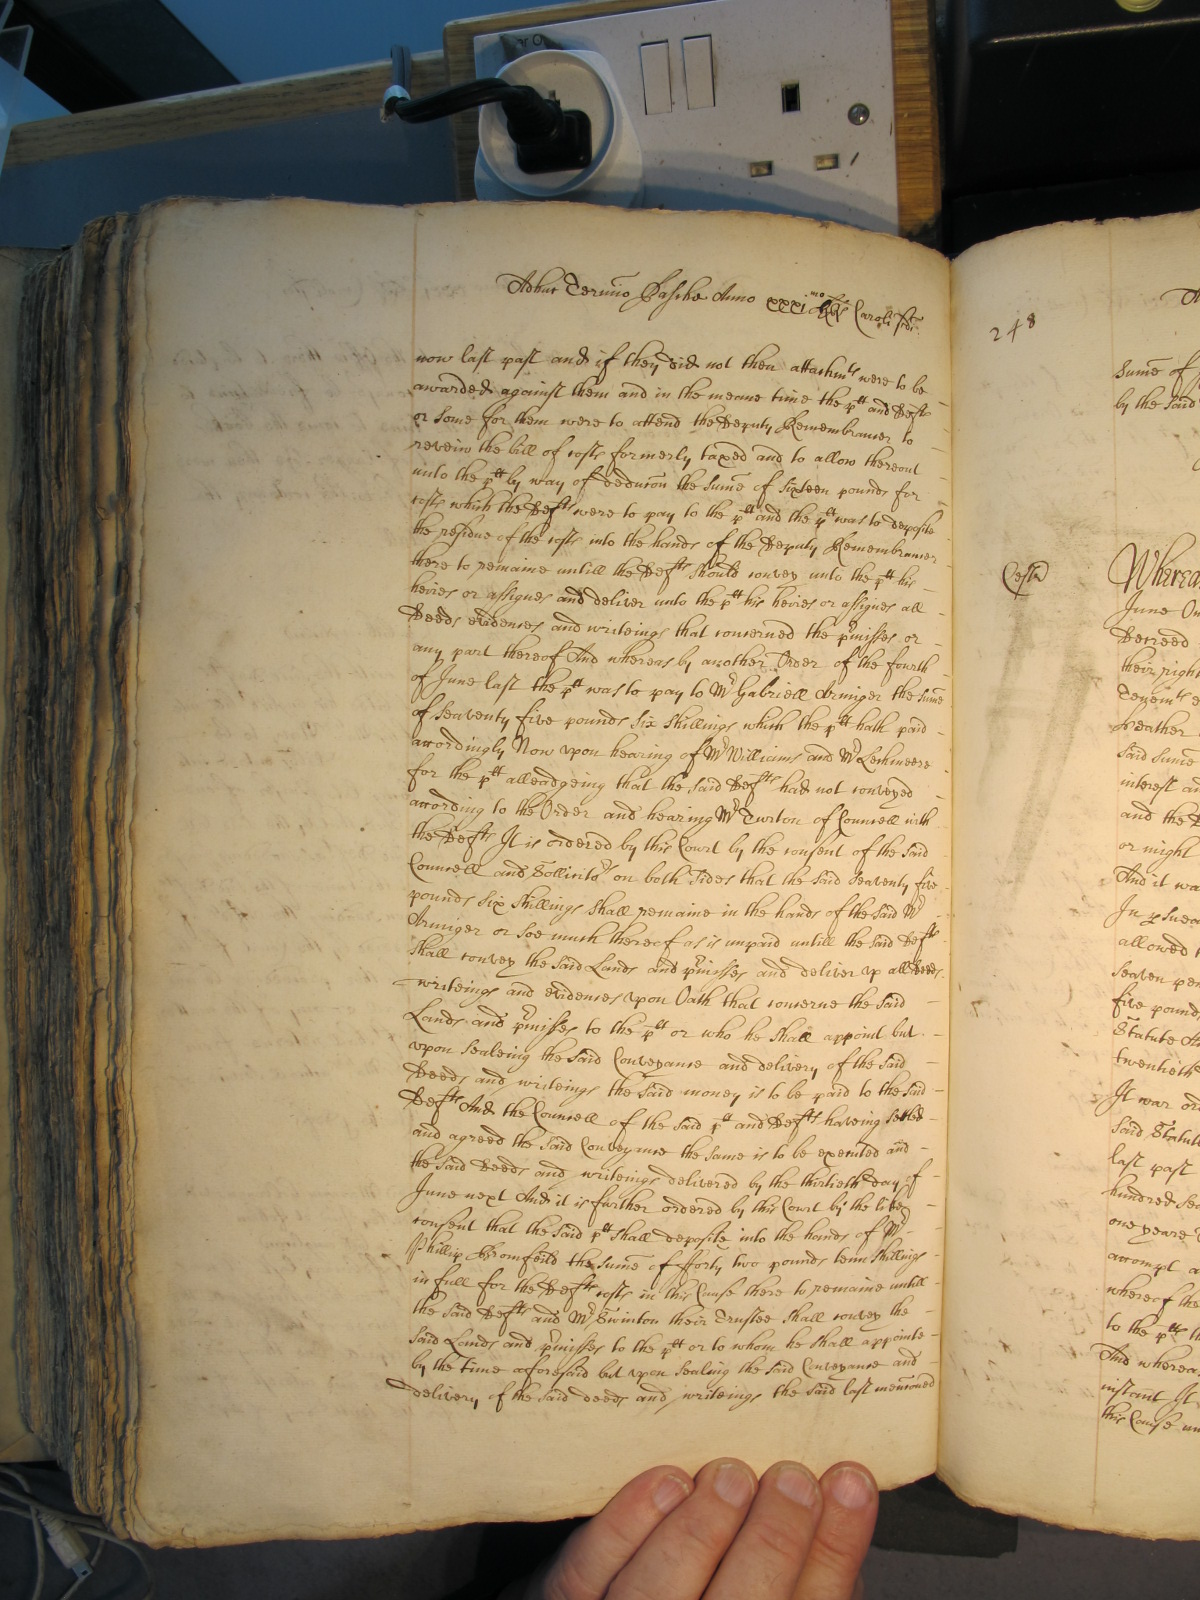 Adhuc Termino Pasche Anno xxxi mo Caroli scdi
now last past and if they did not then attachmts were to be
awarded against them and in the meane time the plt and Defts
or some for them were to attend the Deputy Remembrancer to
reveiw the bill of costs formerly taxed and to allow thereout
unto the plt by way of deduccon the sume of sixteen pounds for
costs which the Defts were to pay to the plt and the plt was to deposite
the residue of the costs into the hands of the Deputy Remembrancer
there to remaine untill the Defts should convey unto the plt his
heires or assignes and deliver unto the plt his heires or assignes all
Deeds evidences and writeings that concerned the pmisses or
any part thereof And whereas by another Order of the fourth
of June last the plt was to pay to Mr Gabriell Armiger the sume
of seaventy five pounds six shillings which the plt hath paid
accordingly Now vpon hearing of Mr Williams and Mr Lechmeere
for the plt alleadgeing that the said Defts had not conveyed
according to the Order and hearing Mr Turton of Councell with
the Defts It is ordered by this Court by the consent of the said
Councell and Sollicitors on both sides that the said seaventy five
pounds six shillings shall remaine in the hands of the said Mr
Armiger or soe much thereof as is unpaid untill the said Defts
shall convey the said Lands and pmisses and deliver vp all deeds
writeings and evidences vpon Oath that concerne the said
Lands and pmisses to the plt or who he shall appoint but
vpon sealeing the said Conveyance and delivery of the said
Deeds and writeings the said money is to be paid to the said
Defts And the Councell of the said plt and Defts haveing setled
and agreed the said Conveyance the same is to be executed and
the said Deeds and writeings delivered by the thirtieth day of
June next And it is further ordered by this Court by the like
consent that the said plt shall deposite into the hands of Mr
Phillip Bromfeild the sume of fforty two pounds tenn shillings
in full for the Defts costs in this Cause there to remaine untill
the said Defts and Mr Swinton their Trustee shall convey the
said Lands and pmisses to the plt or to whom he shall appointe
by the time aforesaid but vpon sealing the said Conveyance and
delivery of the said deeds and writeings the said last menconed
248
sume of
by the said
Wherea
June
Decreed
their right
Tenemts
Heather
said sume
interest an
and the D
or might
And it wa
allowed
seaven pen
five pound
Statute
twentieth
It was ord
said Statute
last past
hundred sea
one yeare
accompt a
whereof the
to the plt th
And wherea
instant It
this Cause un